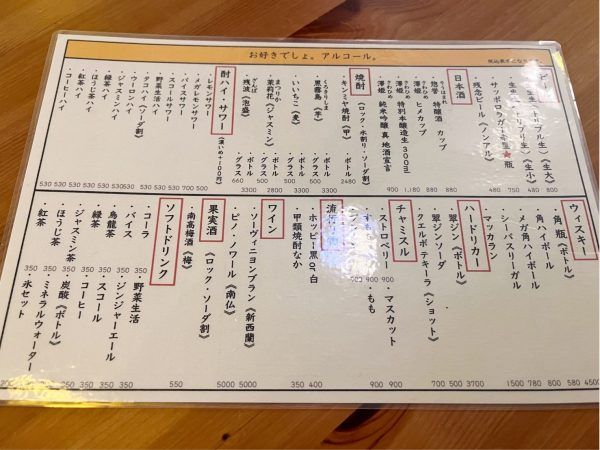 お好きでしょ。アルコール。
・生生生《トリプル生》《生大》
・生生《ドリブル生》《生小》
・サッポロラガー赤星★瓶
・残念ビール《ノンアル》
800
480
750
480
日本酒
・特醸酒 カップ
・澤姫 ヒメカップ
・澤姫 特別本醸造生300ml
・澤姫 純米吟醸 真・地酒宣言
880
880
1,180
900
焼酎
《ロック・水割り・ソーダ割》
・キンミヤ焼酎《甲》
・ボトル
2480
くろきりしま
・黒霧島《芋》
・ボトル
・グラス
・いいちこ《麦》
・ボトル
・グラス
まつりか
・茉莉花《ジャスミン》
・ボトル
・グラス
ざんぱ
・残波《泡盛》
・ボトル
・グラス
酎ハイ・サワー
《濃いめ+100円》
・レモンサワー
・メガレモンサワー
・バイスサワー
・スコールサワー
・野菜生活ハイ
・タコハイ《ソーダ割》
・ウーロンハイ
・ジャスミンハイ
・緑茶ハイ
・ほうじ茶ハイ
・紅茶ハイ
・コーヒーハイ
ウィスキー
・角瓶《ボトル》
・角ハイボール
・メガ角ハイボール
・シーバスリーガル
・マッカラン
4500
580
800
780
1500
ハードリカー
・翠ジン《ボトル》
・翠ジンソーダ
・クエルボ テキーラ《ショット》
3700
500
700
チャミスル
・ストロベリー
・マスカット
・すもも
・もも
900
900
900
900
・ホッピー黒or白
・甲類焼酎なか
400
350
ワイン
・ソーヴィニヨンブラン《新西蘭》
・ピノ・ノワール《南仏》
5000
5000
果実酒
《ロック・ソーダ割》
・南高梅酒《梅》
550
ソフトドリンク
・コーラ
・バイス
・烏龍茶
・緑茶
・ジャスミン茶
・ほうじ茶
・紅茶
・野菜生活
・ジンジャーエール
・スコール
・コーヒー
・炭酸《ボトル》
・ミネラルウォーター
・氷セット